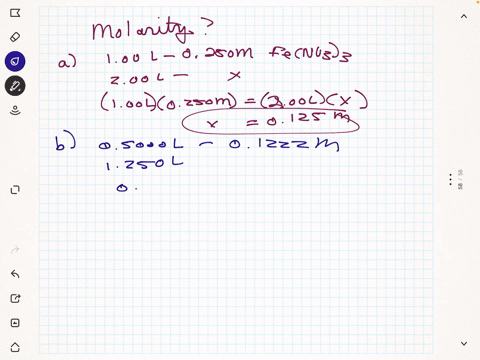 Molarity?
a) 1.00L - 0.250M Fe(NO3)3
2.00L - x
(1.00L)(0.250M) = (2.00L)(x)
x = 0.125 M
b) 0.5000L - 0.1222M
1.250L
0.
58 / 58